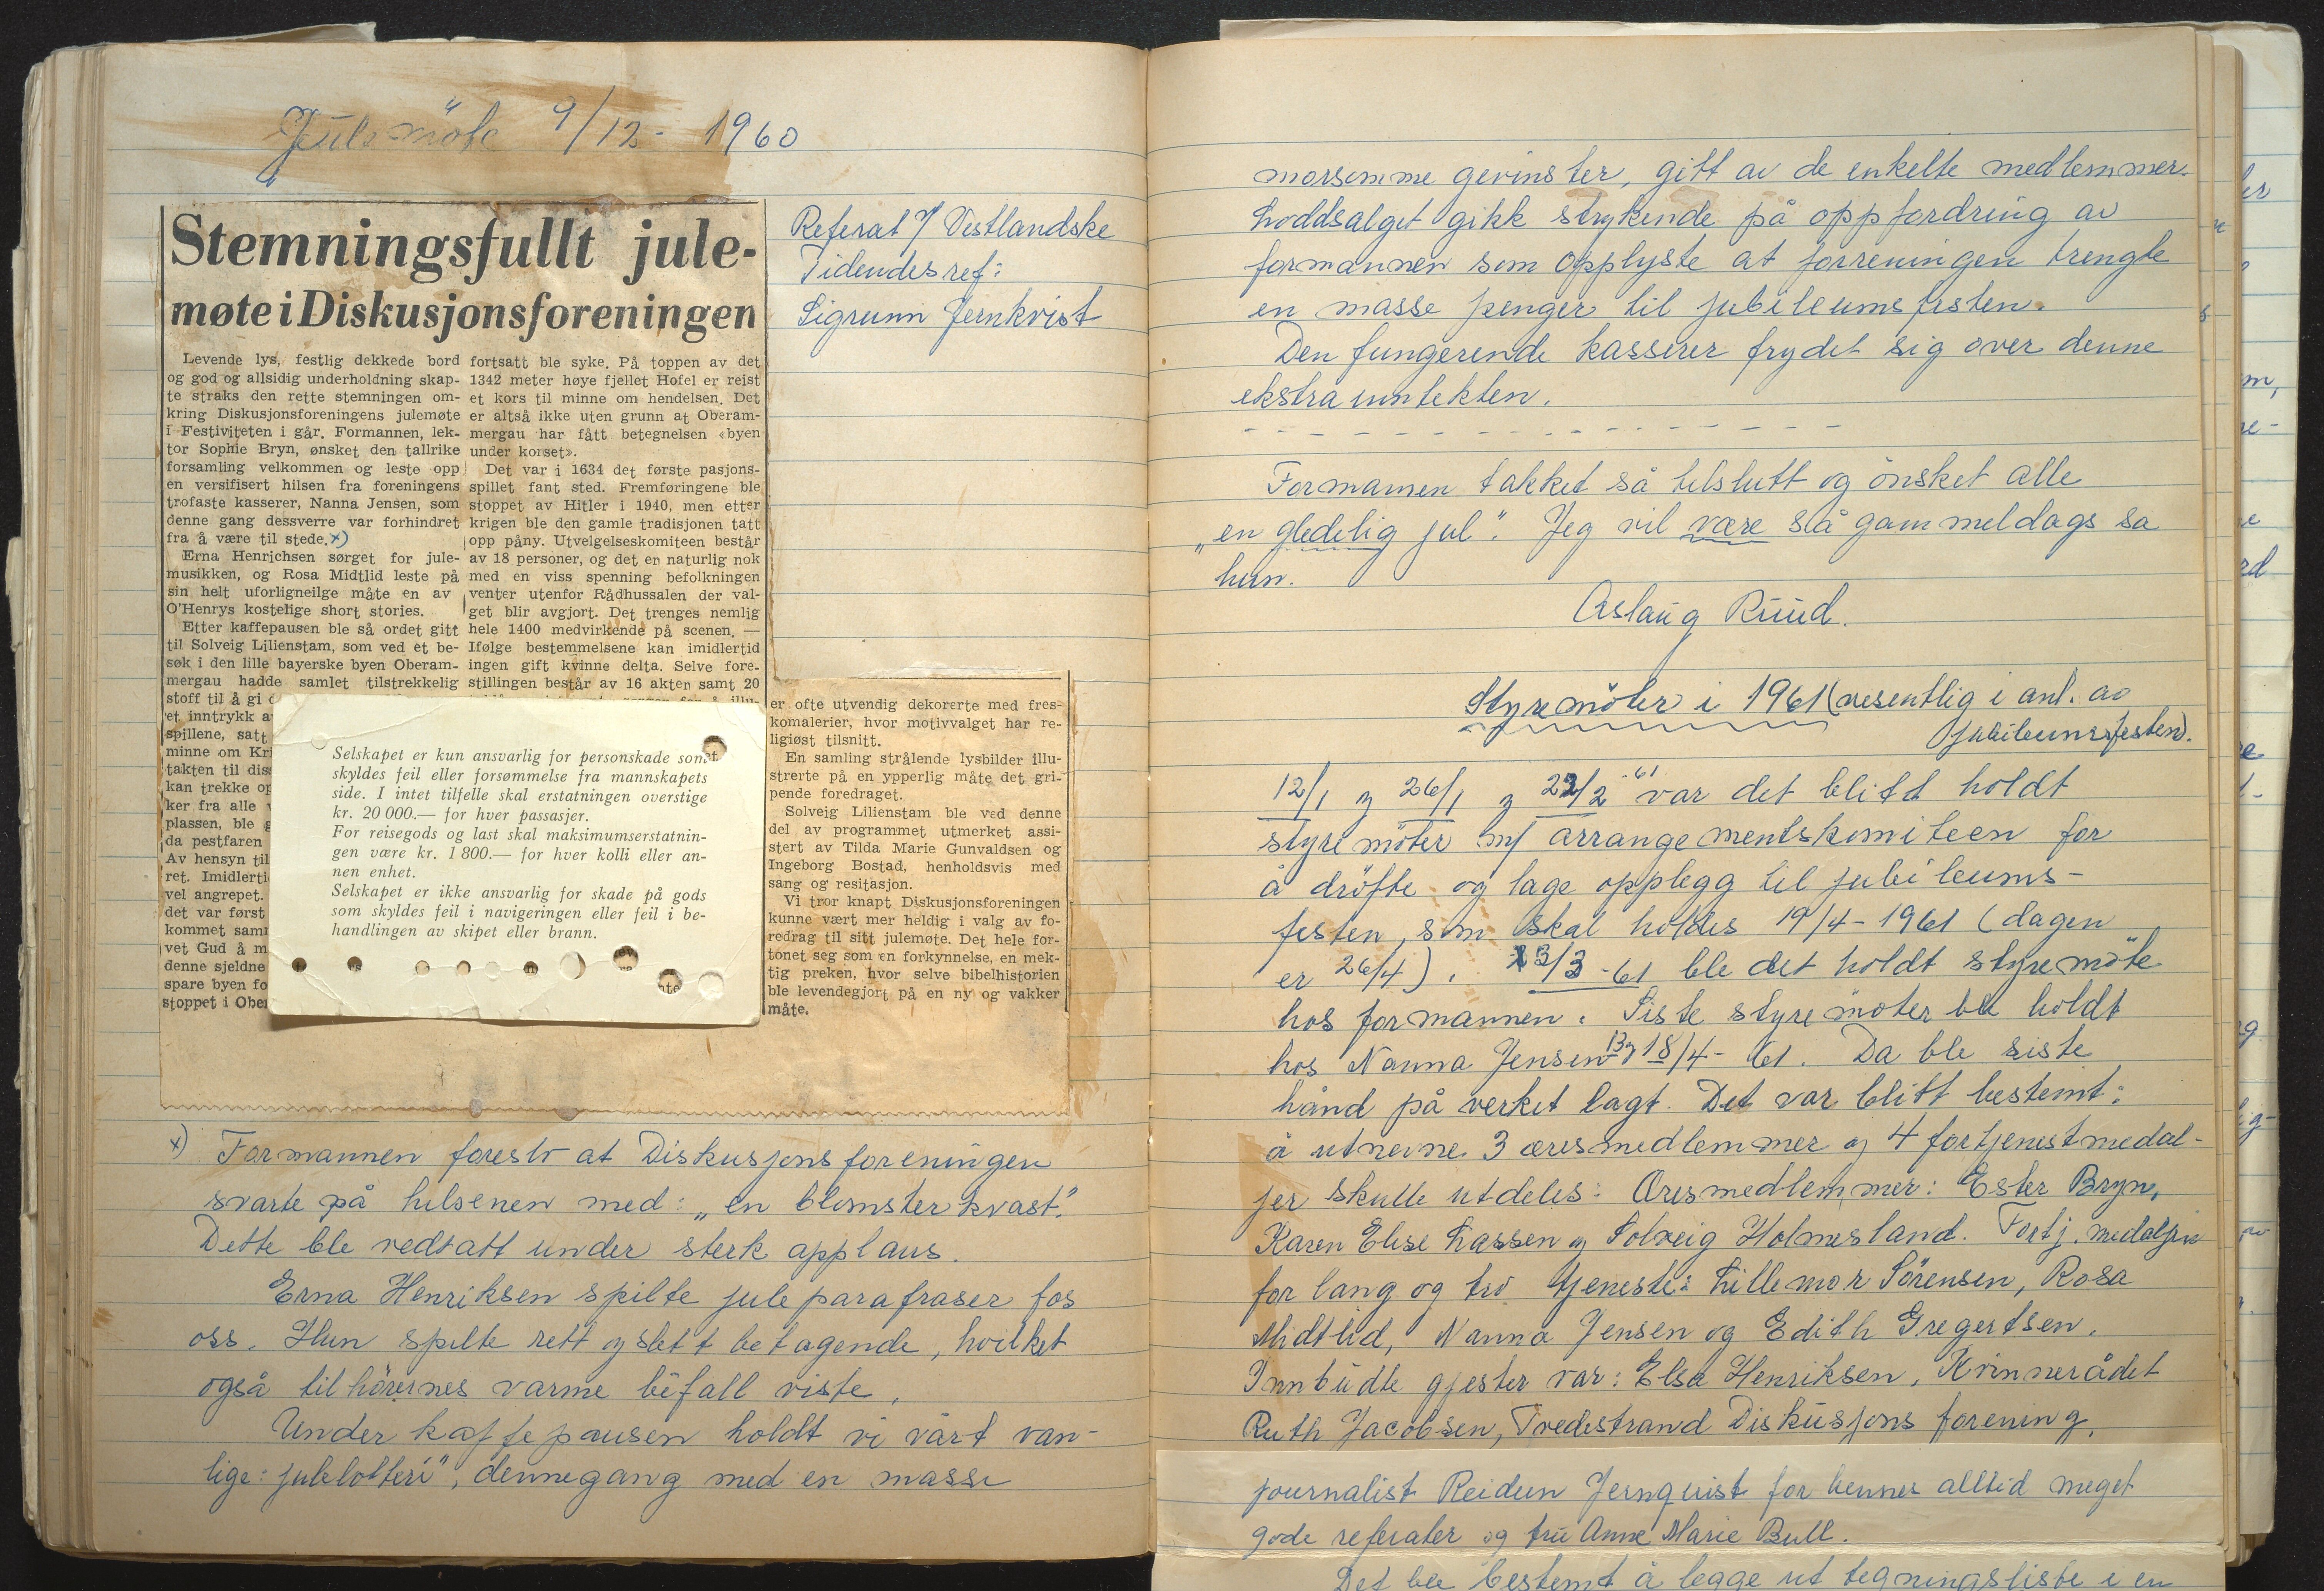 Julemöte 9/12- 1960
Stemningsfullt jule-
møte i Diskusjonsforeningen
Referat i/ Vestlandske
Tidendes ref:
Sigrunn Jernkvist
Levende lys, festlig dekkede bord
og god og allsidig underholdning skap-
te straks den rette stemningen om-
kring Diskusjonsforeningens julemøte
i Festiviteten i går. Formannen, lek-
tor Sophie Bryn, ønsket den tallrike
forsamling velkommen og leste opp
en versifisert hilsen fra foreningens
trofaste kasserer, Nanna Jensen, som
denne gang dessverre var forhindret
fra å være til stede. x)
Erna Henrichsen sørget for jule-
musikken, og Rosa Midtlid leste på
sin helt uforligneilge måte en av
O'Henrys kostelige short stories.
Etter kaffepausen ble så ordet gitt
til Solveig Lilienstam, som ved et be-
søk i den lille bayerske byen Oberam-
mergau hadde samlet tilstrekkelig
stoff til å gi
et inntrykk a
spillene, satt
minne om Kri
takten til dis
kan trekke op
ker fra alle
plassen, ble g
da pestfaren
Av hensyn til
ret. Imidlerti
vel angrepet.
det var først
kommet sam
vet Gud å m
denne sjeldne
spare byen fo
stoppet i Ober
fortsatt ble syke. På toppen av det
1342 meter høye fjellet Hofel er reist
et kors til minne om hendelsen. Det
er altså ikke uten grunn at Oberam-
mergau har fått betegnelsen «byen
under korset».
Det var i 1634 det første pasjons-
spillet fant sted. Fremføringene ble
stoppet av Hitler i 1940, men etter
krigen ble den gamle tradisjonen tatt
opp påny. Utvelgelseskomiteen består
av 18 personer, og det en naturlig nok
med en viss spenning befolkningen
venter utenfor Rådhussalen der val-
get blir avgjort. Det trenges nemlig
hele 1400 medvirkende på scenen. —
Ifølge bestemmelsene kan imidlertid
ingen gift kvinne delta. Selve fore-
stillingen består av 16 akter samt 20
er ofte utvendig dekorerte med fres-
komalerier, hvor motivvalget har re-
ligiøst tilsnitt.
En samling strålende lysbilder illu-
strerte på en ypperlig måte det gri-
pende foredraget.
Solveig Lilienstam ble ved denne
del av programmet utmerket assi-
stert av Tilda Marie Gunvaldsen og
Ingeborg Bostad, henholdsvis med
sang og resitasjon.
Vi tror knapt Diskusjonsforeningen
kunne vært mer heldig i valg av fo-
redrag til sitt julemøte. Det hele for-
tonet seg som en forkynnelse, en mek-
tig preken, hvor selve bibelhistorien
ble levendegjort på en ny og vakker
måte.
Selskapet er kun ansvarlig for personskade som
skyldes feil eller forsømmelse fra mannskapets
side. I intet tilfelle skal erstatningen overstige
kr. 20 000.— for hver passasjer.
For reisegods og last skal maksimumserstatnin-
gen være kr. 1 800.— for hver kolli eller an-
nen enhet.
Selskapet er ikke ansvarlig for skade på gods
som skyldes feil i navigeringen eller feil i be-
handlingen av skipet eller brann.
x) Formannen foreslo at Diskusjonsforeningen
svarte på hilsenen med: „en blomsterkvast."
Dette ble vedtatt under sterk applaus.
Erna Henriksen spilte juleparafraser for
oss. Hun spilte rett og slett betagende, hvilket
også tilhörernes varme bifall viste.
Under kaffepausen holdt vi vårt van-
lige: julelotteri", dennegang med en masse
morsomme gevinster, gitt av de enkelte medlemmer.
Loddsalget gikk strykende på oppfordring av
formannen som opplyste at forreningen trengte
en masse penger til jubileumsfesten.
Den fungerende kasserer frydet sig over denne
ekstra inntekten.
Formannen takket så tilslutt og önsket alle
„en gledelig jul". Jeg vil være så gammeldags sa
hun.
Aslaug Ruud.
Styremöter i 1961 (vesentlig i anl. av
jubileumsfesten).
12/1 og 26/1 og 22/2 -61 var det blitt holdt
styremöter m/ arrangementskomiteen for
å dröfte og lage opplegg til jubileums-
festen, som skal holdes 19/4-1961 (dagen
er 26/4). 13/3-61 ble det holdt styremöte
hos formannen. Siste styremöter ble holdt
hos Nanna Jensen 13 og 18/4-61. Da ble siste
hånd på verket lagt. Det var blitt bestemt:
å utnevne 3 æresmedlemmer og 4 fortjenestmedal-
jer skulle utdeles: Æresmedlemmer: Ester Bryn,
Karen Elise Lassen og Solveig Holmesland. Fortj. medaljen
for lang og tro tjeneste: Lillemor Sörensen, Rosa
Midtlid, Nanna Jensen og Edith Gregertsen.
Innbudte gjester var: Elsa Henriksen, Kvinnerådet
Ruth Jacobsen, Tvedestrand Diskusjons forening,
journalist Reidun Jernquist for hennes alltid meget
gode referater og fru Anne Marie Bull.
Det ble bestemt å legge ut tegningsliste i en